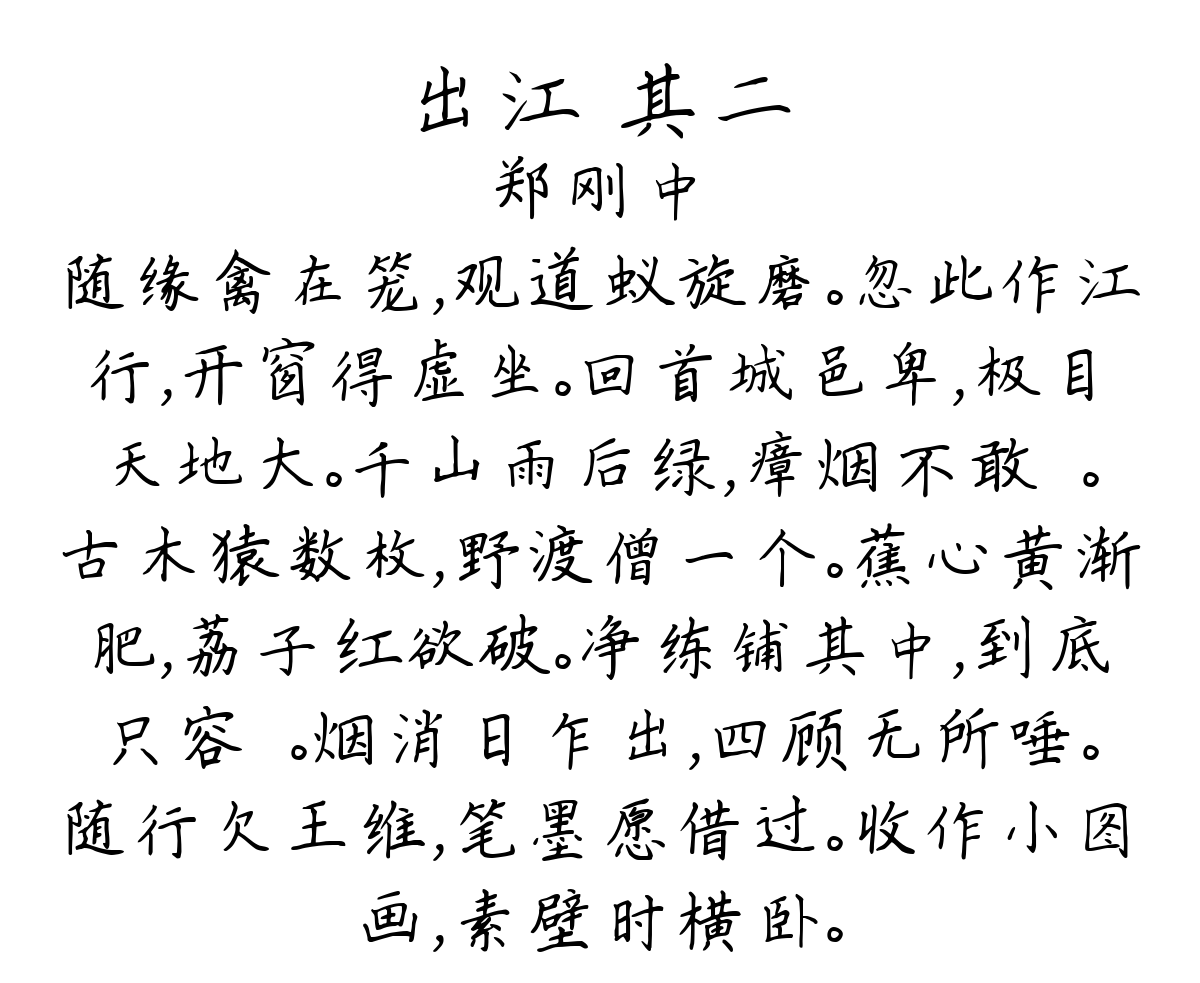 出江 其二
郑刚中
随缘禽在笼,观道蚁旋磨。忽此作江
行,开窗得虚坐。回首城邑卑,极目
天地大。千山雨后绿,瘴烟不敢 。
古木猿数枚,野渡僧一个。蕉心黄渐
肥,荔子红欲破。净练铺其中,到底
只容 。烟消日乍出,四顾无所唾。
随行欠王维,笔墨愿借过。收作小图
画,素壁时横卧。